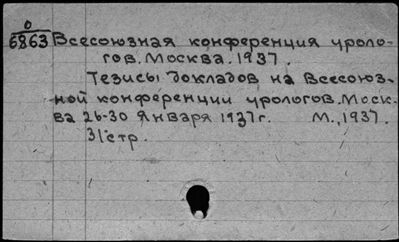 0
6863 Всесоюзная конференция уроло-
гов. Москва. 1937.
Тезисы докладов на Всесоюз-
ной конференции урологов. Моск-
ва 26-30 Января 1937 г. М., 1937.
31 стр.